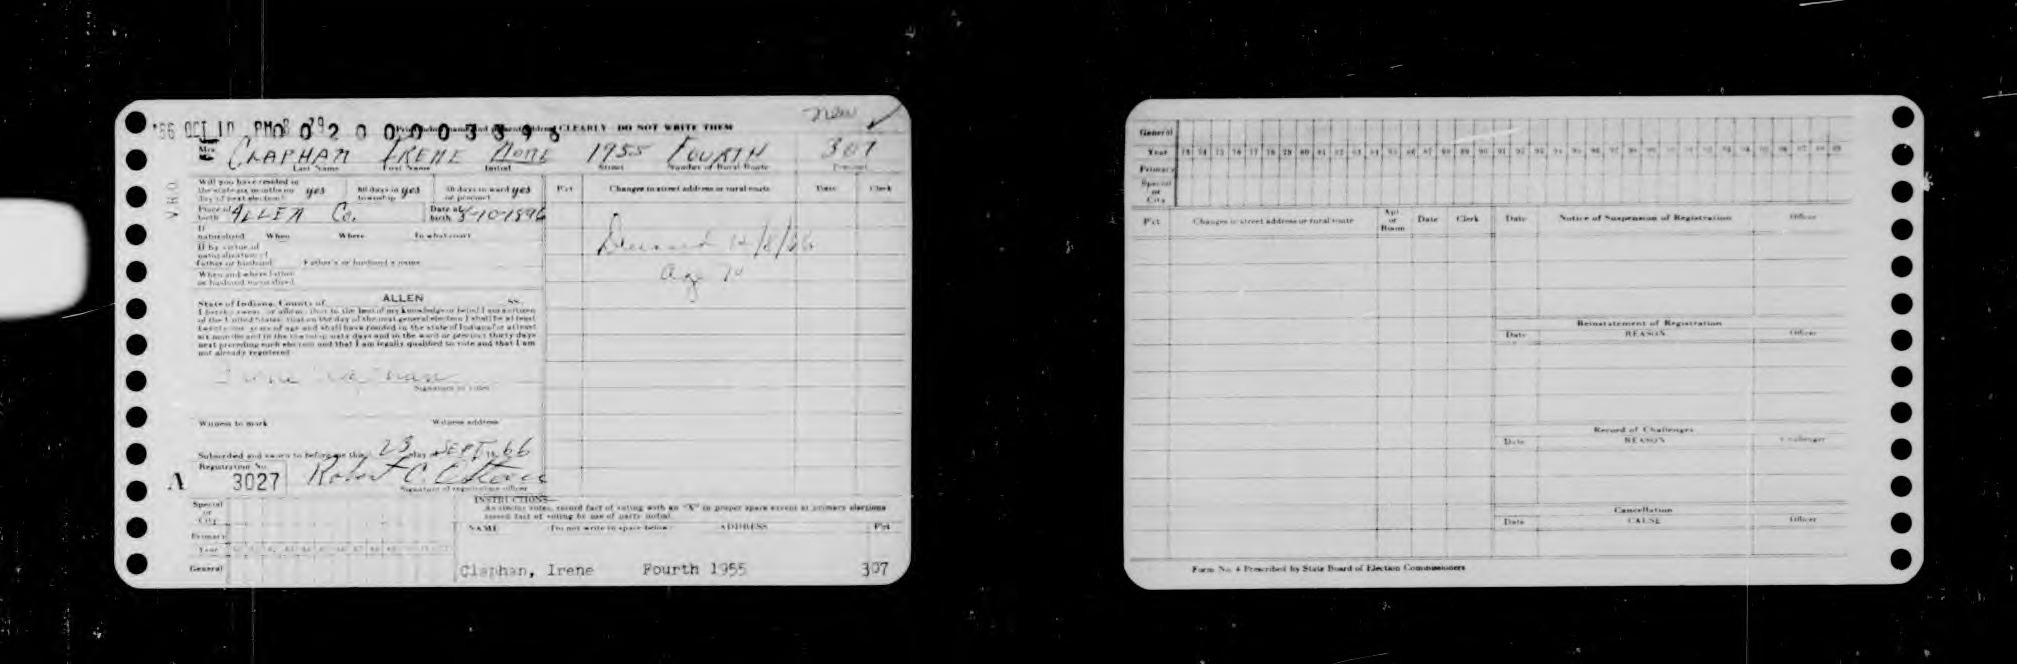 new
'66 OCT 10 PM
CLEARLY DO NOT WRITE THEM
Mrs. CLAPHAM IRENE NONE 1955 FOURTH 307
Last Name First Name Initial Street Number or Rural Route Precinct
Will you have resided in the state six months on day of next election? yes 60 days in township yes 30 days in ward or precinct yes
Pct Changes in street address or rural route Date Clerk
Place of birth ALLEN Co. Date of birth
If naturalized When Where In what court
Deceased
If by virtue of naturalization of father or husband Father's or husband's name
Age 70
When and where father or husband naturalized
State of Indiana, County of ALLEN ss.
I hereby swear or affirm that to the best of my knowledge or belief I am a citizen
of the United States, that on the day of the next general election I shall be at least
twenty-one years of age and shall have resided in the state of Indiana for at least
six months and in the township sixty days and in the ward or precinct thirty days
next preceding such election and that I am legally qualified to vote and that I am
not already registered
Signature of voter
Witness to mark Witness address
Subscribed and sworn to before me this 23 day of SEPT 19 66
Registration No.
A 3027 Robert C.
Signature of registration officer
INSTRUCTIONS
As elector votes, record fact of voting with an "X" in proper space except at primary elections
record fact of voting by use of party initial.
Special or City
NAME (Do not write in space below) ADDRESS Pct
Primary
Year
General
Claphan, Irene Fourth 1955 307
General
Year
Primary
Special or City
Pct Changes in street address or rural route Apt or Room Date Clerk Date Notice of Suspension of Registration Officer
Reinstatement of Registration
Date REASON Officer
Record of Challenges
Date REASON Challenger
Cancellation
Date CAUSE Officer
Form No. 4 Prescribed by State Board of Election Commissioners